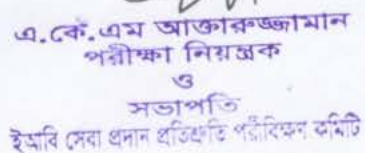 এ.কে.এম আক্তারুজ্জামান
পরীক্ষা নিয়ন্ত্রক
ও
সভাপতি
ইআবি সেবা প্রদান প্রতিশ্রুতি পরিবিক্ষন কমিটি